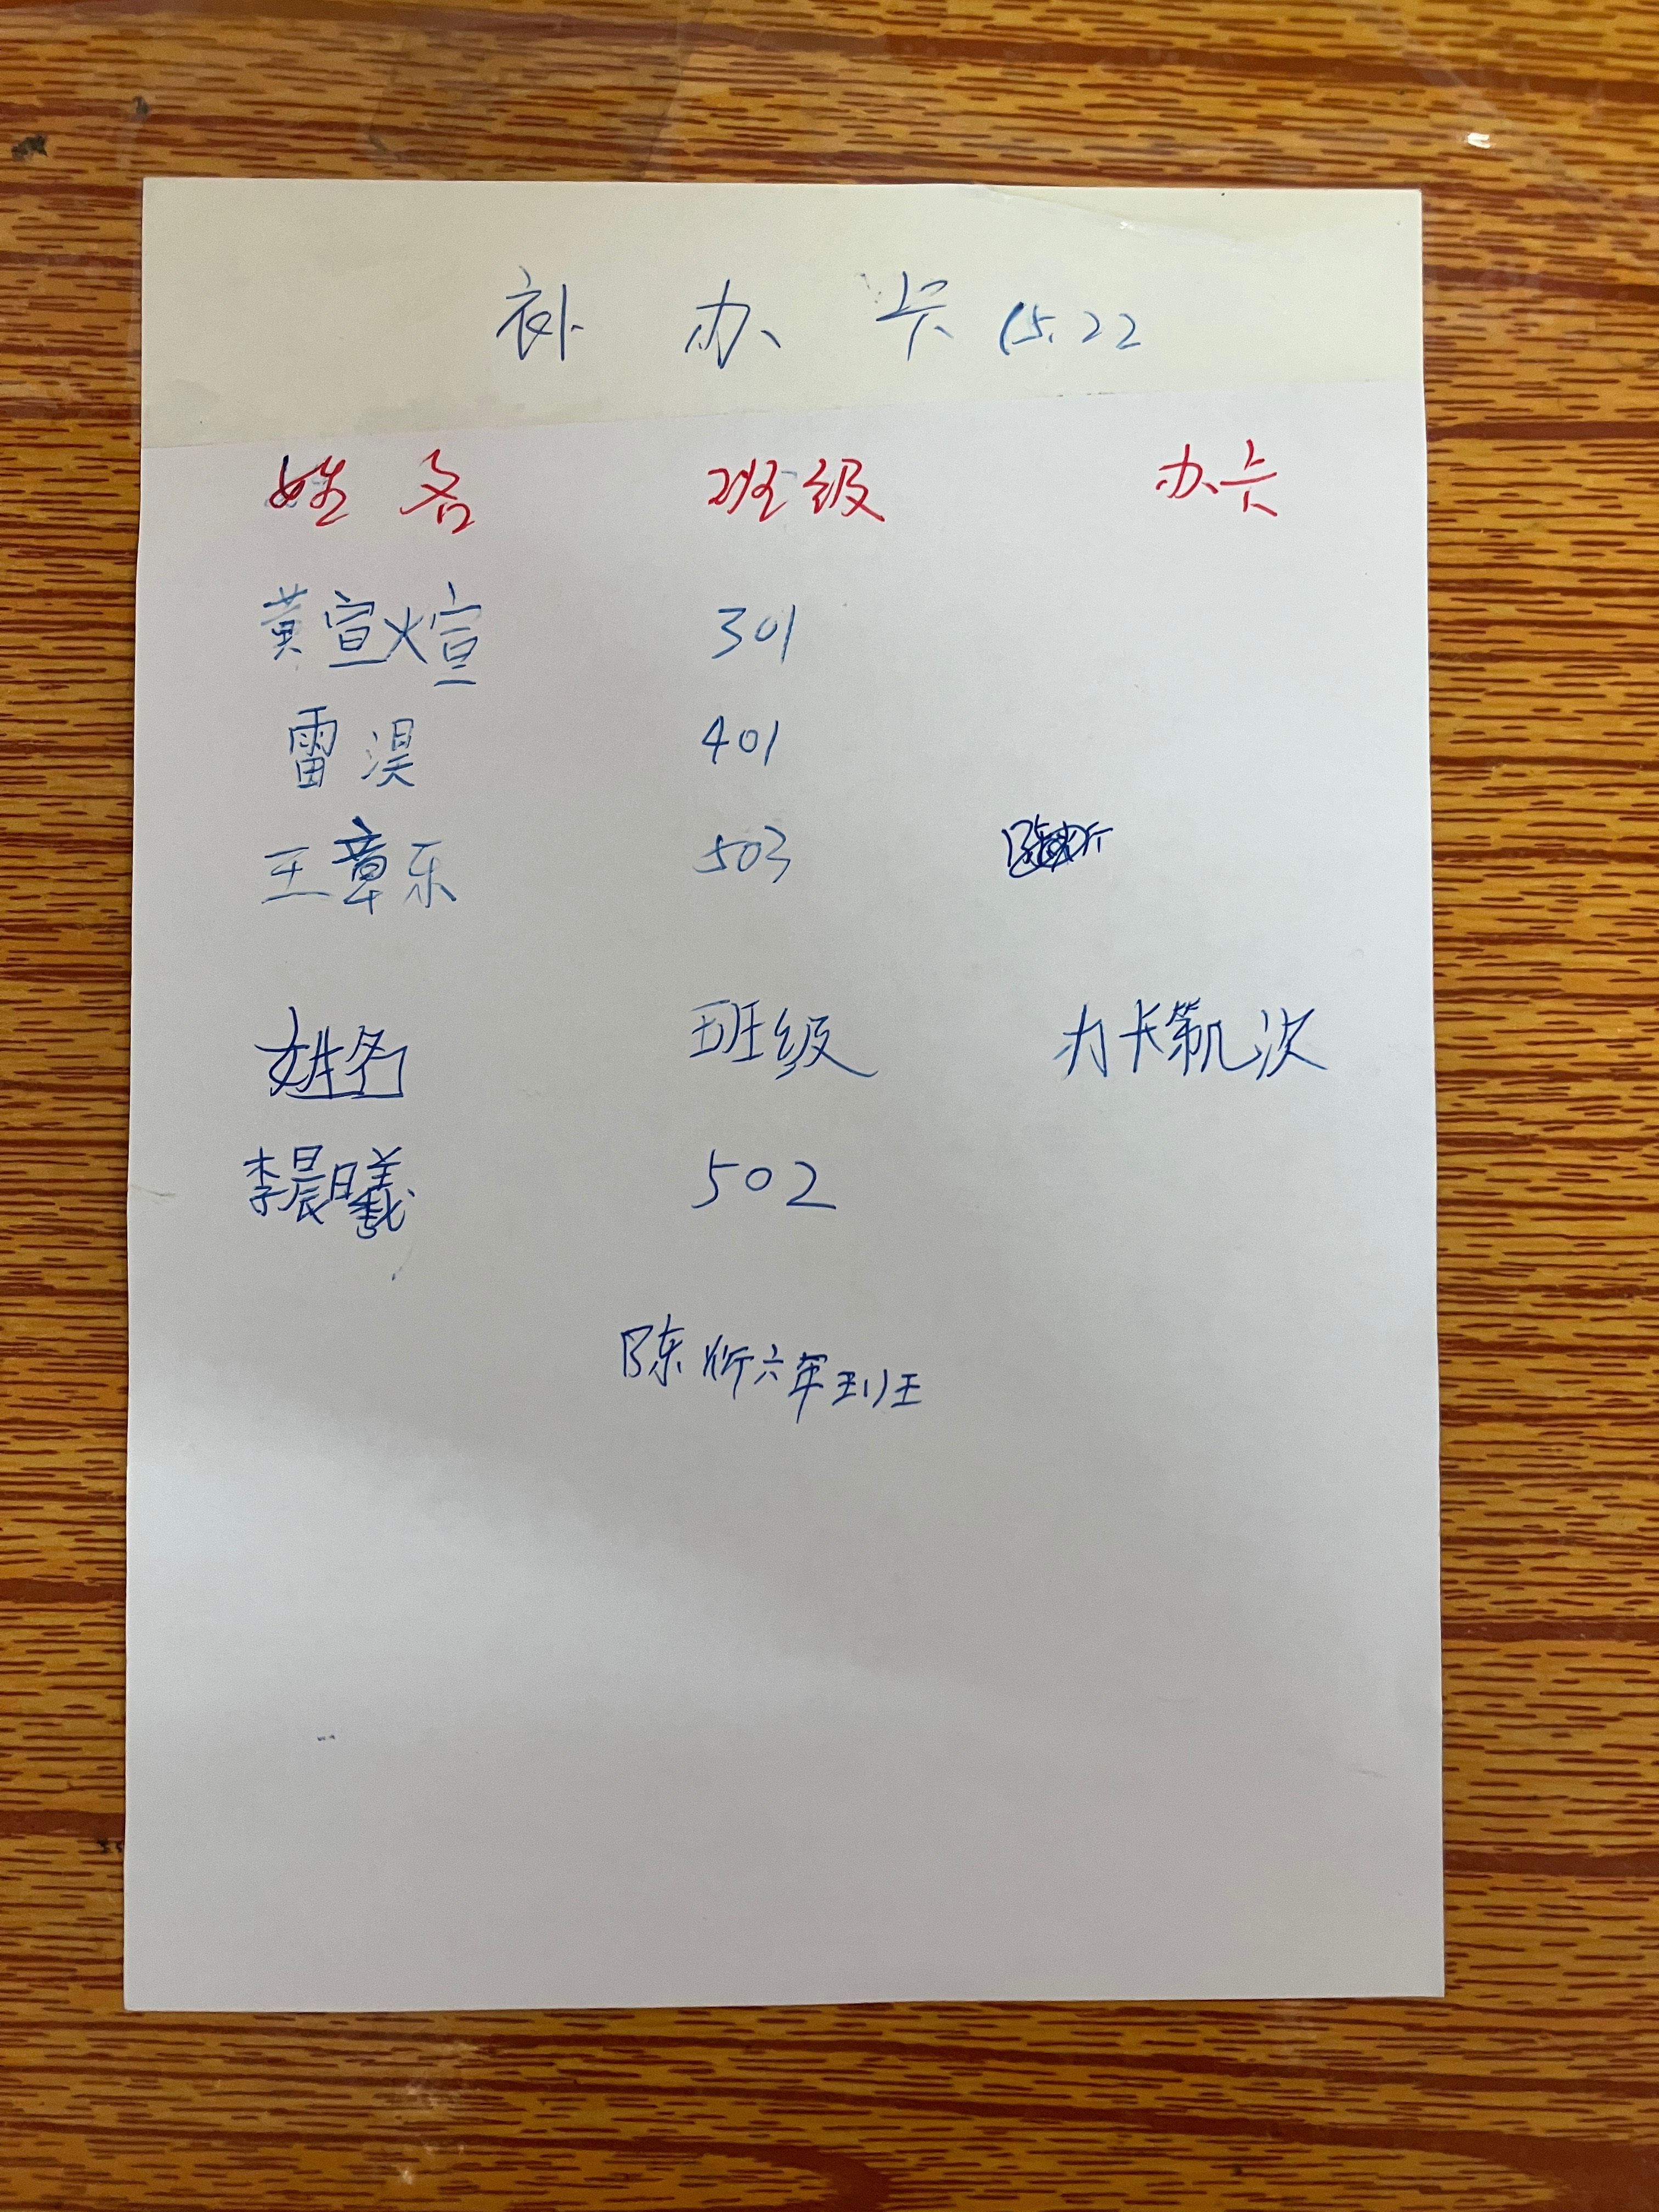 补 办 卡 (5.22
姓 名 班级 办卡
黄宣煊 301
雷淏 401
王章乐 503
姓名 班级 办卡第几次
李晨曦 502
陈炘六年班